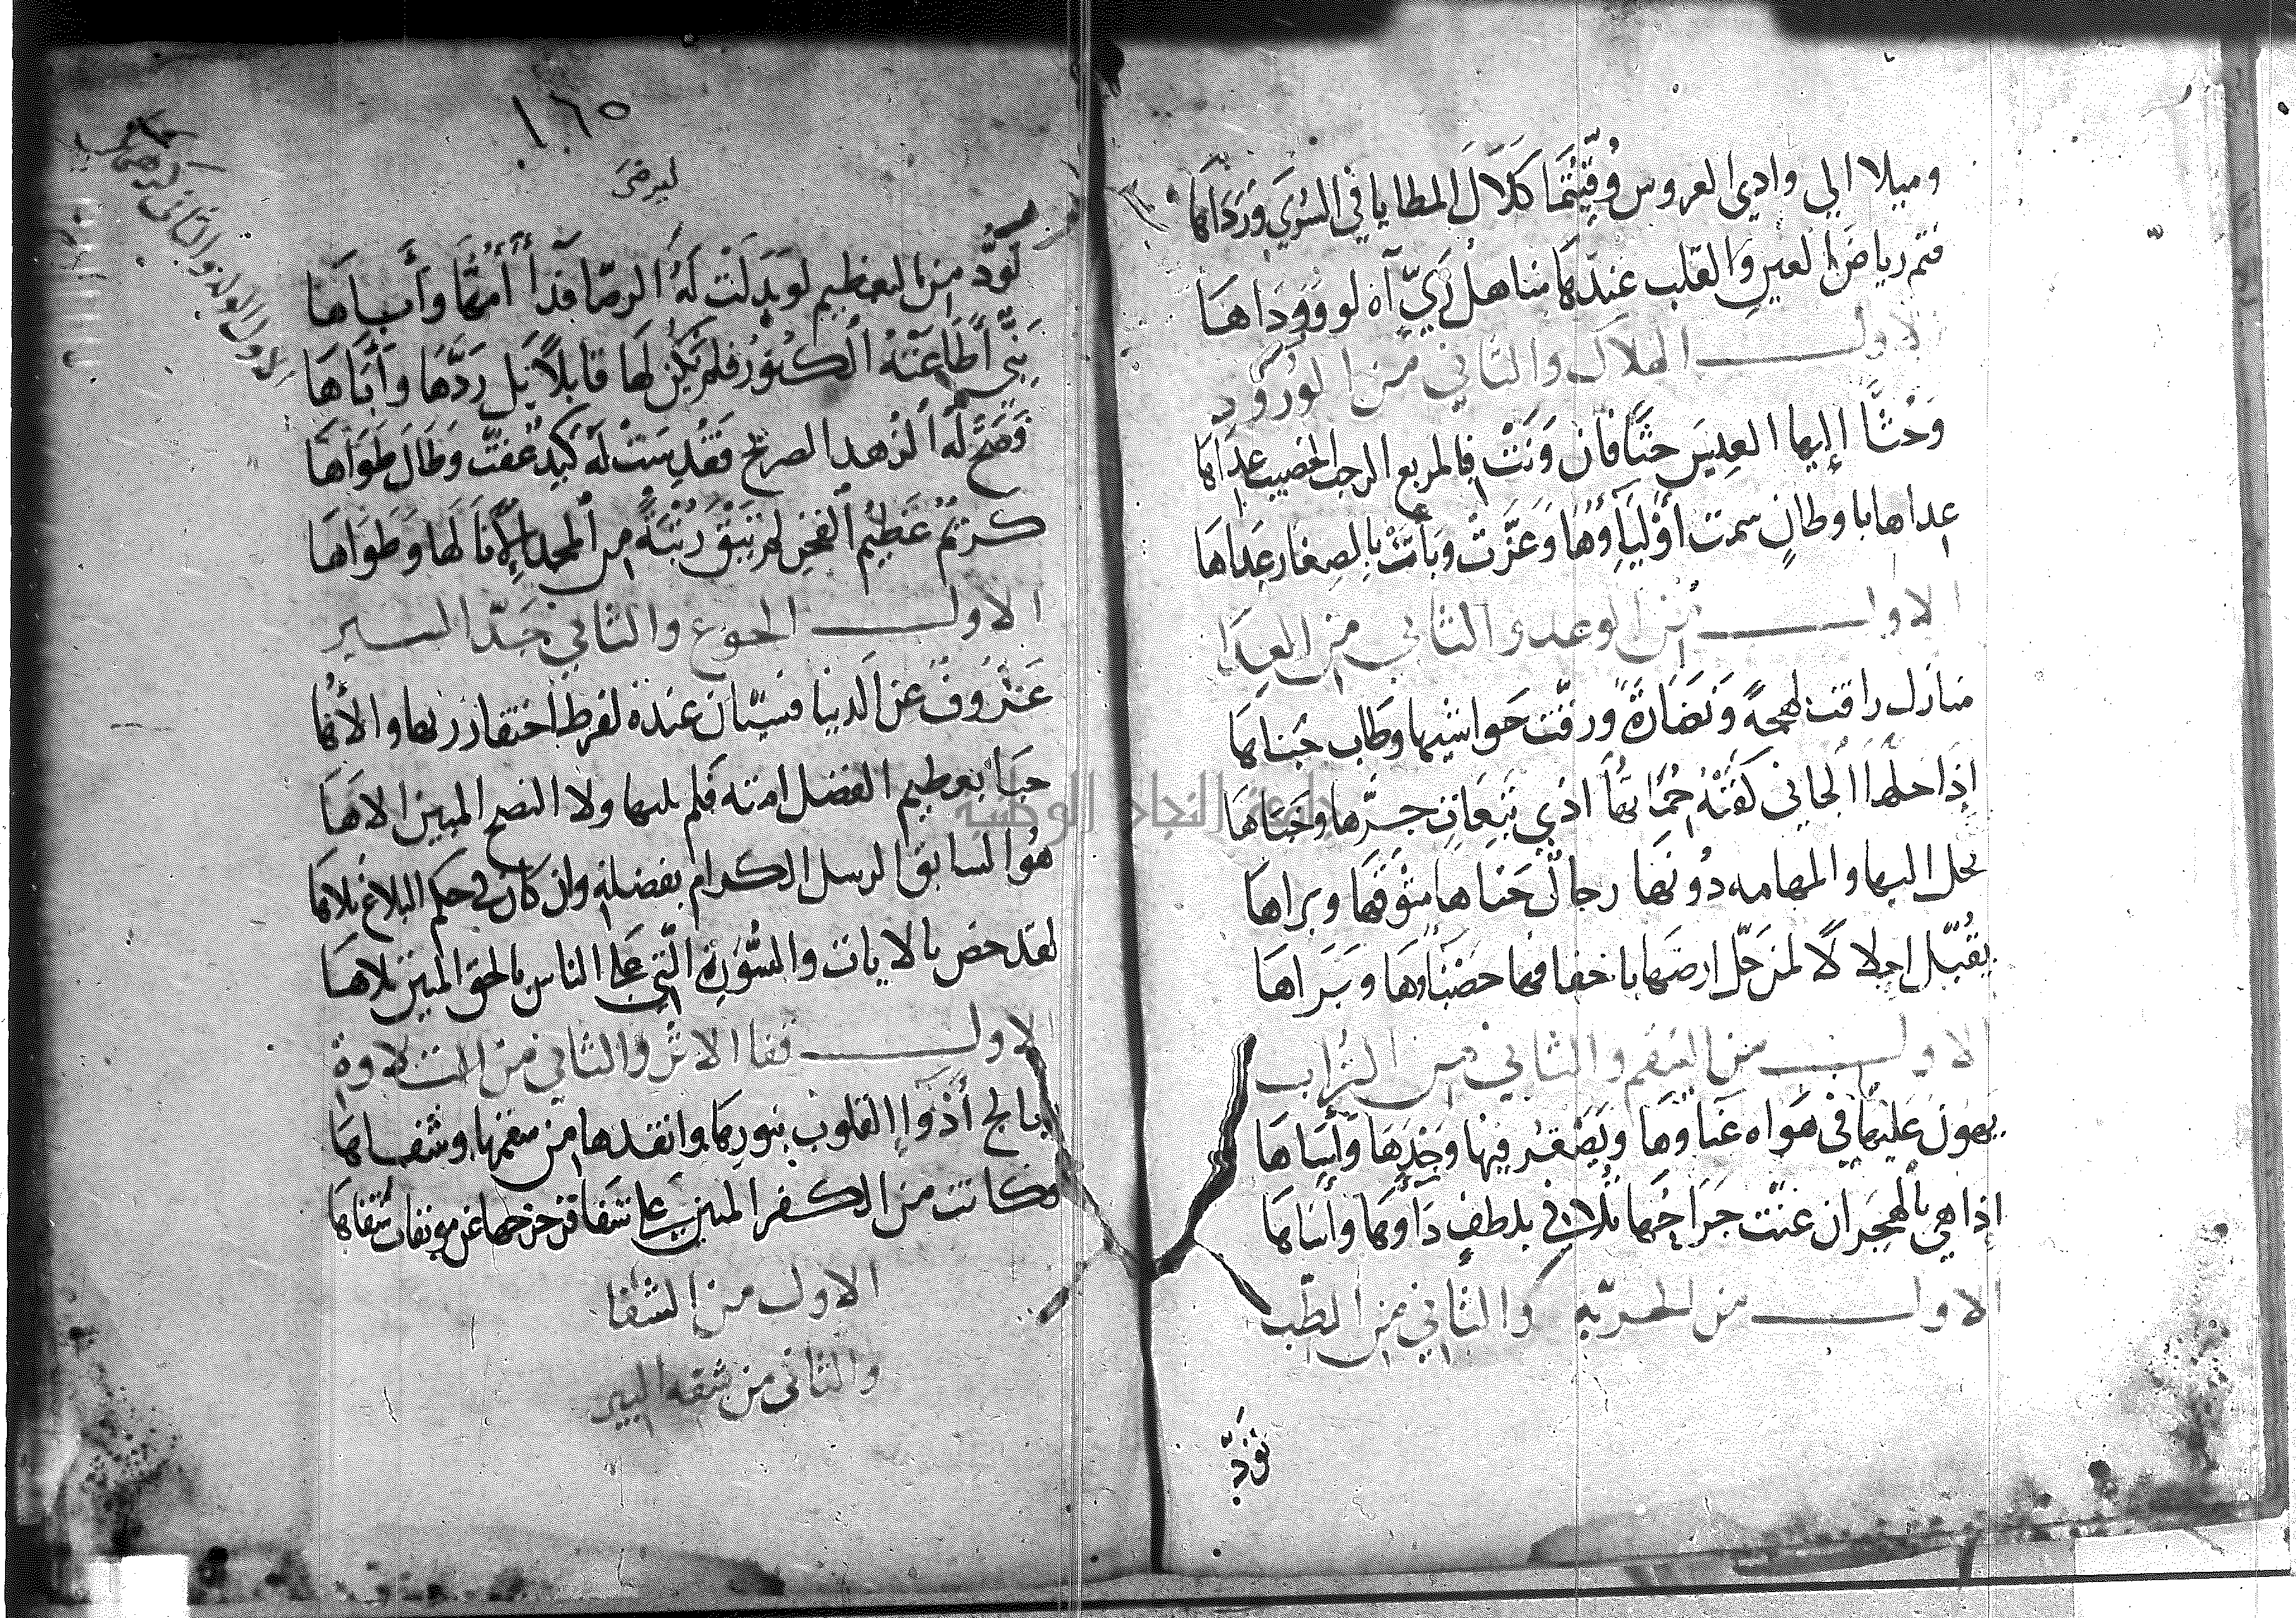 وميلا الي وادي العروس وُقِّيتُمَا كَلَالَ المطايا في السُّرَي وَرَدَاهَا
فثم رياض العين والقلب عندها مناهل رَيٍّ آه لو وَرَدَاهَا
الاول الهلاك والثاني من الورُود
وَحُثَّا إليها العِيسَ حثًّا فان وَنَتْ فبالمربع الرحب الخصيب عِدَاهَا
عداها باوطانٍ سمت أوْلِيَاوُهَا وَعَزَّتْ وَبَأتْ بِالصغار عِدَاهَا
الاول من الوعد والثاني من العِدَا
منازل راقت بهجةً وَنَضَارَةً ورقّت حَواشيها وطَاب جَناهَا
إِذَا حلها الجاني كَفَتْهُ حُمَاتهَا اذي تَبِعَاتٍ جرَّها وجَنَاهَا
تحل اليها والمهامه دُونَهَا رجال حَنَاهَا شَوْقهَا وبَراهَا
يُقَبّل اجلالًا لمن حَلّ ارضَهَا باخفافها حَصْبَاوهَا وَبَرَاهَا
الاول من السقم والثاني من التراب
يَهون عَليهَا في هَواه عَنَاوهَا وَيَصْغر فيها وَجْدهَا وَأسَاهَا
اذا هي بالهجران عَنّت جَرَاحُهَا تلافي بلطفٍ دَآوهَا وأسَاهَا
الاول من الحزن والثاني من الطب
تَوَدّ
١٦٥
ليرضي
تَوَدّ من التعظيم لو بذلت لهُ الرضا فدآ أمّهَا وأباهَا
نبيّ أطَاعَتْهُ الكنوز فلم يكن لهَا قابلًا بَل رَدَّهَا وأبَاهَا
الاول الولد والثاني
وَصَحَّ لَهُ الزهد الصريح فقدست لَهُ كبِد عفّت وطَال طَوَاهَا
كريم عَظِيم الفخر لم تبق رُتبَة من المجد إلّا نالهَا وطَوَاهَا
الاول الجوع والثاني جَدّ السير
عَزُوف عن الدنيا فسيّان عندَه لفرط احتقار زيها ولأهَا
حبَا بعظيم الفضل امته فلم يلهها ولا النصح المبين الاهَا
هُو السابق الرسل الكرام بفضله وان كان في حكم البلاغ تلاهَا
لقد خص بالايات والسُّوَرِة الّتي علي الناس بالحق المبين تلاهَا
الاول قفا الاثر والثاني من التلاوة
يعالج أدْوا القلوب بنورهَا وانقذها من سقمها وشفاهَا
وكانت من الكفر المبين علي شَفَا فزحزحها عن موبقات شفاهَا
الاول من الشفا
والثاني من شفه البير